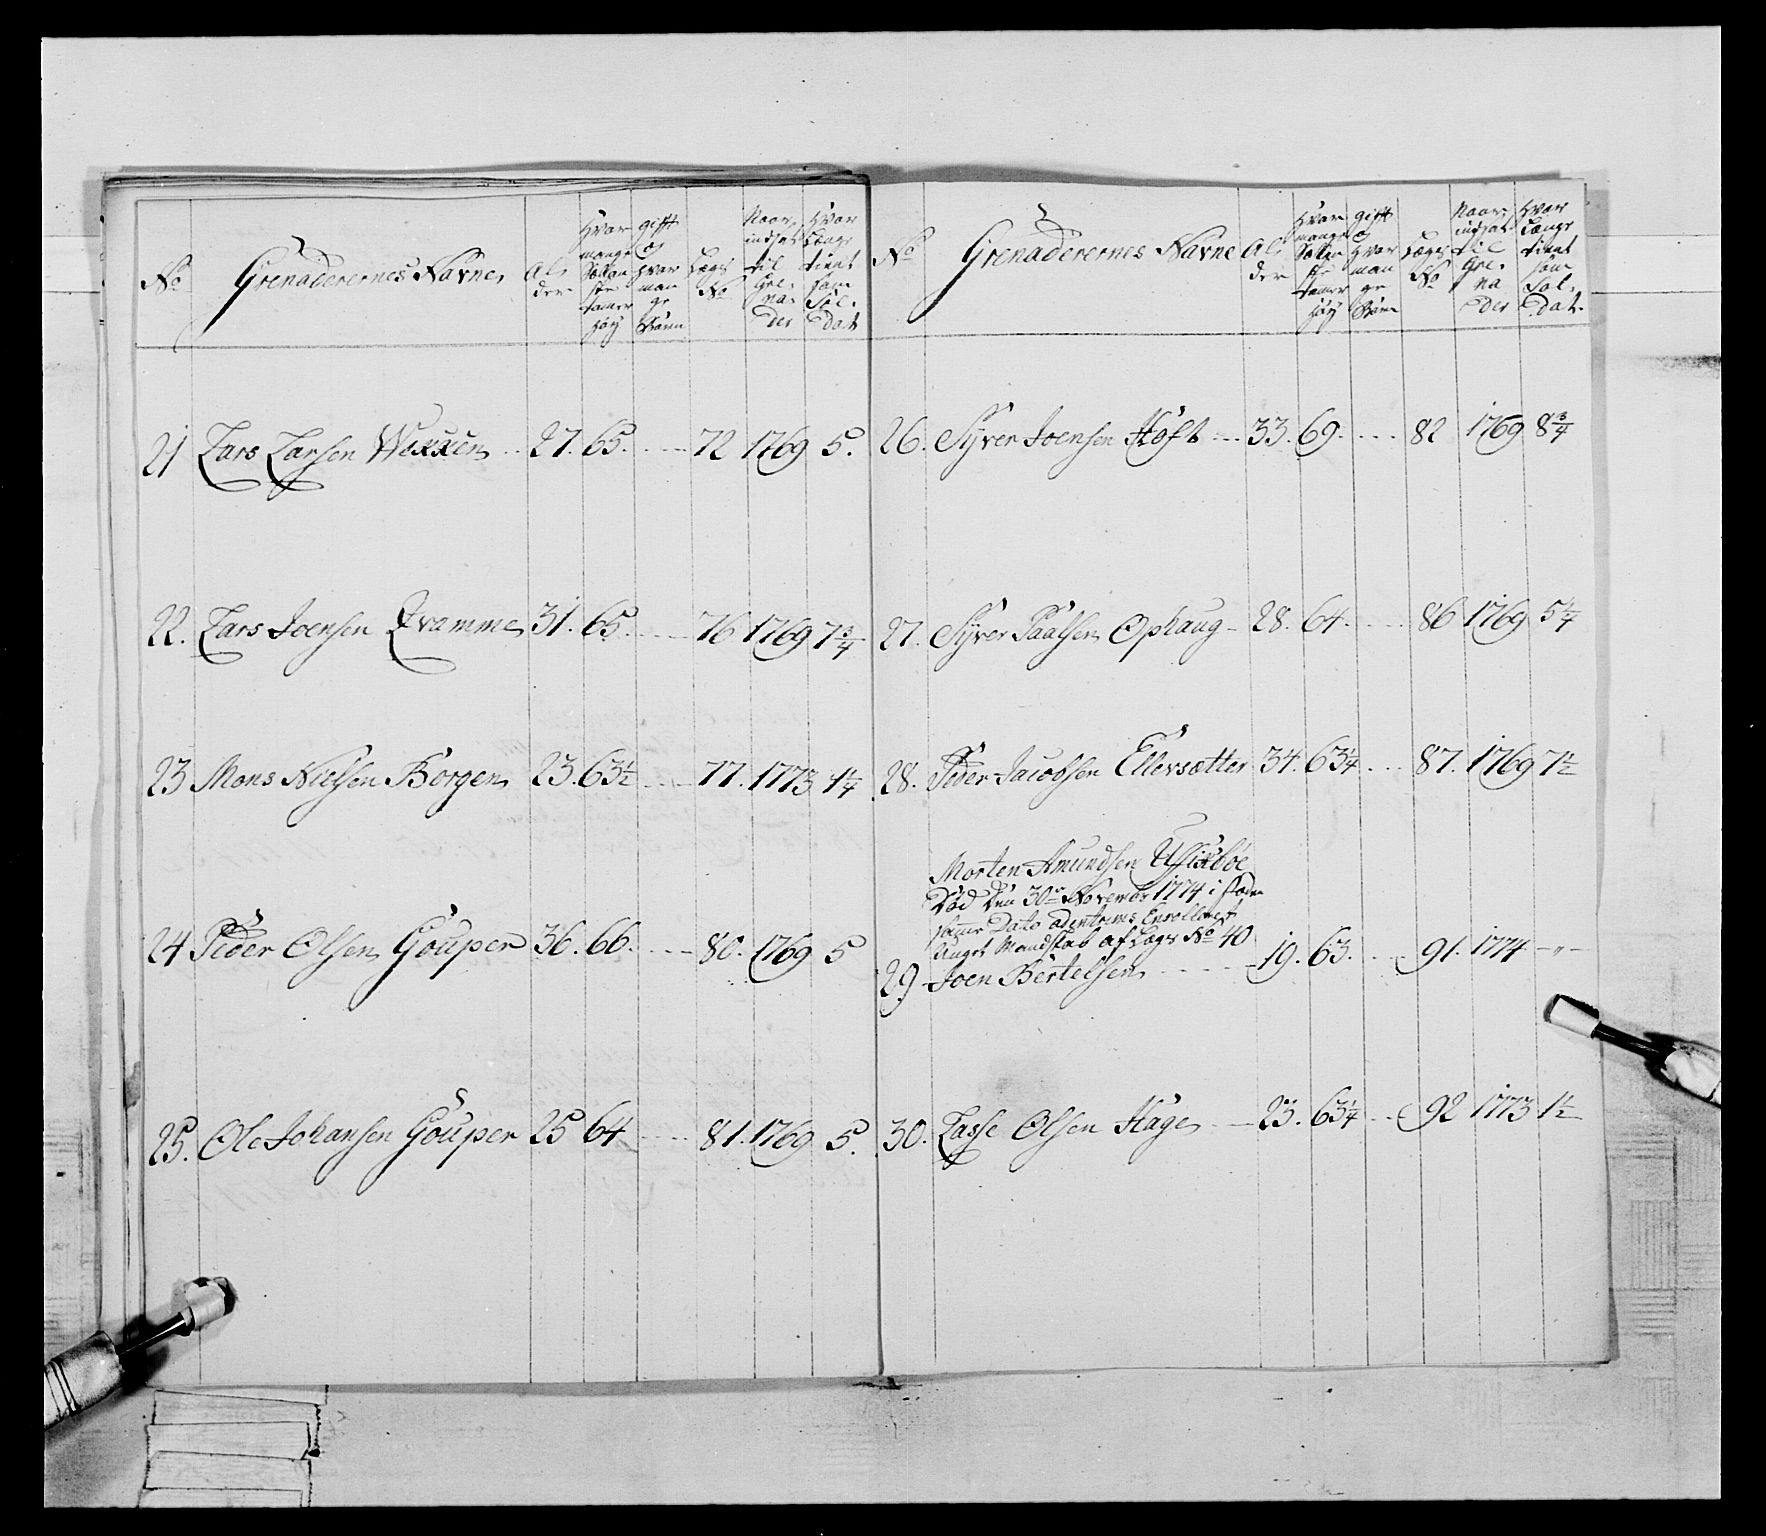 No Grenaderernes Navne Al- der Hvor mange Sællan- ske tomer høy gift og hvor man ge Børn Lægs No Naar indsat til Gre- na- der Hvor Længe tient som Sol- dat
21 Lars Larsen 27. 65. 72 1769 5.
22. Lars Joensen Qvamme 31. 65. 76 1769 7 3/4
23 Mons Nielsen Borgen 23. 63 1/2 77. 1773 1 1/4
24 Peder Olsen Gouper 36. 66. 80. 1769 5
25. Ole Johansen Gouper 25 64 81. 1769 5.
No Grenaderernes Navne Al- der Hvor mange Sællan- ske tomer høy gift og hvor man ge Børn Lægs No Naar indsat til Gre- na der Hvor Længe tient som Sol- dat.
26. Syver Joensen Hoft 33. 69. 82 1769 8 3/4
27. Syver Paalsen Ophaug 28. 64. 86 1769 5 1/4
28. Peder Jacobsen Ellevsætter 34. 63 1/4 87. 1769 7 1/2
Morten Amundsen
Død den 30te Novembr 1774 i steden
samme Dato Enrolleret
Ungt Mandskab af Lægs No 40
29 Joen Bertelsen 19. 63. 91. 1774 - " -
30. Lasse Olsen Hage 23. 63 1/4 92 1773 1 1/2